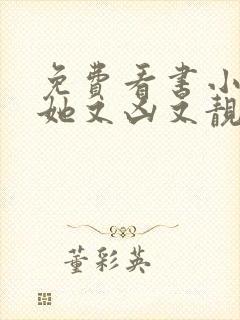 免费看书小
她又凶又靓
董彩英